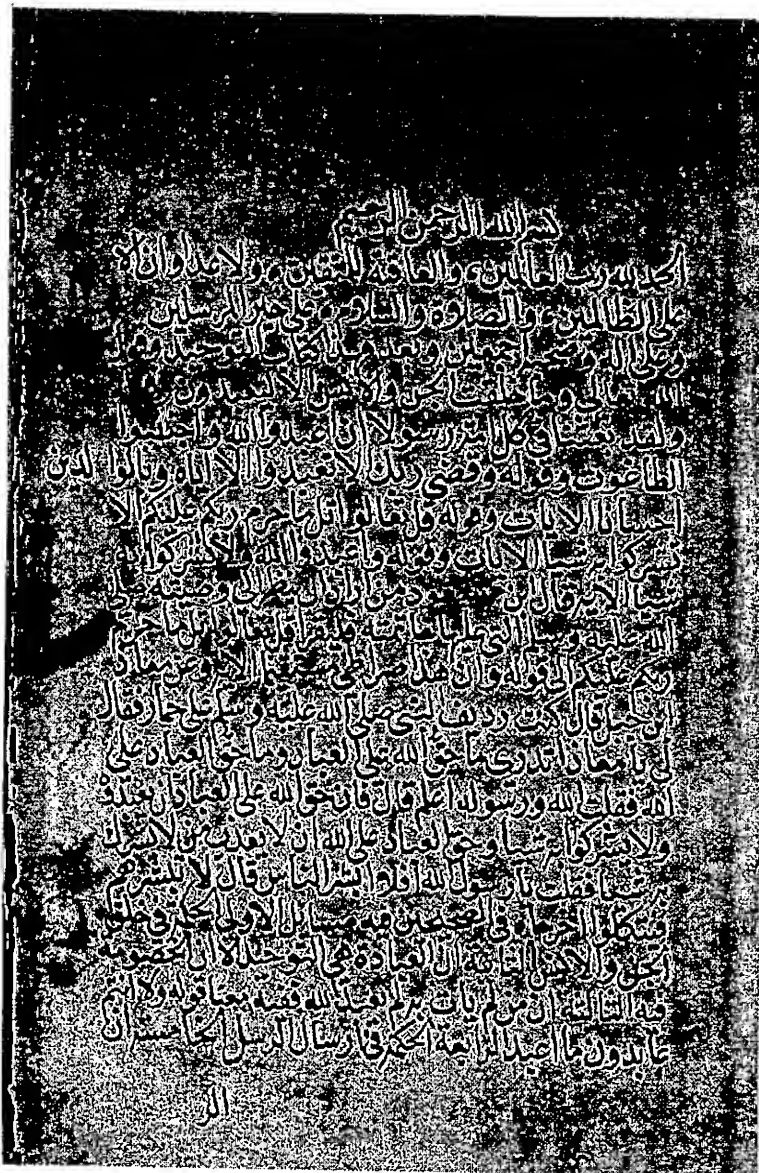 بسم الله الرحمن الرحيم
الحمد لله رب العالمين والعاقبة للمتقين ولا عدوان الا
على الظالمين والصلاة والسلام على خير المرسلين
وعلى اله وصحبه اجمعين وبعد هذا كتاب التوحيد وقول
الله تعالى وما خلقت الجن والانس الا ليعبدون
ولقد بعثنا في كل امة رسولا ان اعبدوا الله واجتنبوا
الطاغوت وقوله وقضى ربك الا تعبدوا الا اياه وبالوالدين
احسانا الايات وقوله قل تعالوا اتل ما حرم ربكم عليكم الا
تشركوا به شيا الايات وقوله واعبدوا الله ولا تشركوا به
شيا الاية قال ابن من اراد ان ينظر الى وصية
الله عليه وسلم التي عليها خاتمه فليقرا قل تعالوا اتل ما حرم
ربكم عليكم الى قوله وان هذا صراطي مستقيما الاية وعن معاذ
ابن جبل قال كنت رديف النبي صلى الله عليه وسلم على حمار فقال
لي يا معاذ اتدري ما حق الله على العباد وما حق العباد على
الله فقلت الله ورسوله اعلم قال فان حق الله على العباد ان يعبدوه
ولا يشركوا به شيا وحق العباد على الله ان لا يعذب من لا يشرك
به شيا فقلت يا رسول الله افلا ابشر الناس قال لا تبشرهم
فيتكلوا اخرجاه في الصحيحين فيه مسايل الاولى الحكمة في خلق
الجن والانس الثانية ان العبادة هي التوحيد لان الخصومة
فيه الثالثة ان من لم يات به لم يعبد الله ففيه معنى قوله ولا انتم
عابدون ما اعبد الرابعة الحكمة في ارسال الرسل الخامسة ان
الر